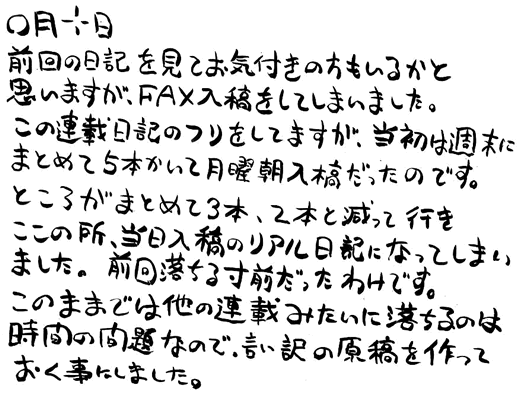 ○月÷日
前回の日記を見てお気付きの方もいるかと
思いますが、FAX入稿をしてしまいました。
この連載日記のフリをしてますが、当初は週末に
まとめて5本かいて月曜朝入稿だったのです。
ところがまとめて3本、2本と減って行き
ここの所、当日入稿のリアル日記になってしまい
ました。前回落ちる寸前だったわけです。
このままでは他の連載みたいに落ちるのは
時間の問題なので、言い訳の原稿を作って
おく事にしました。